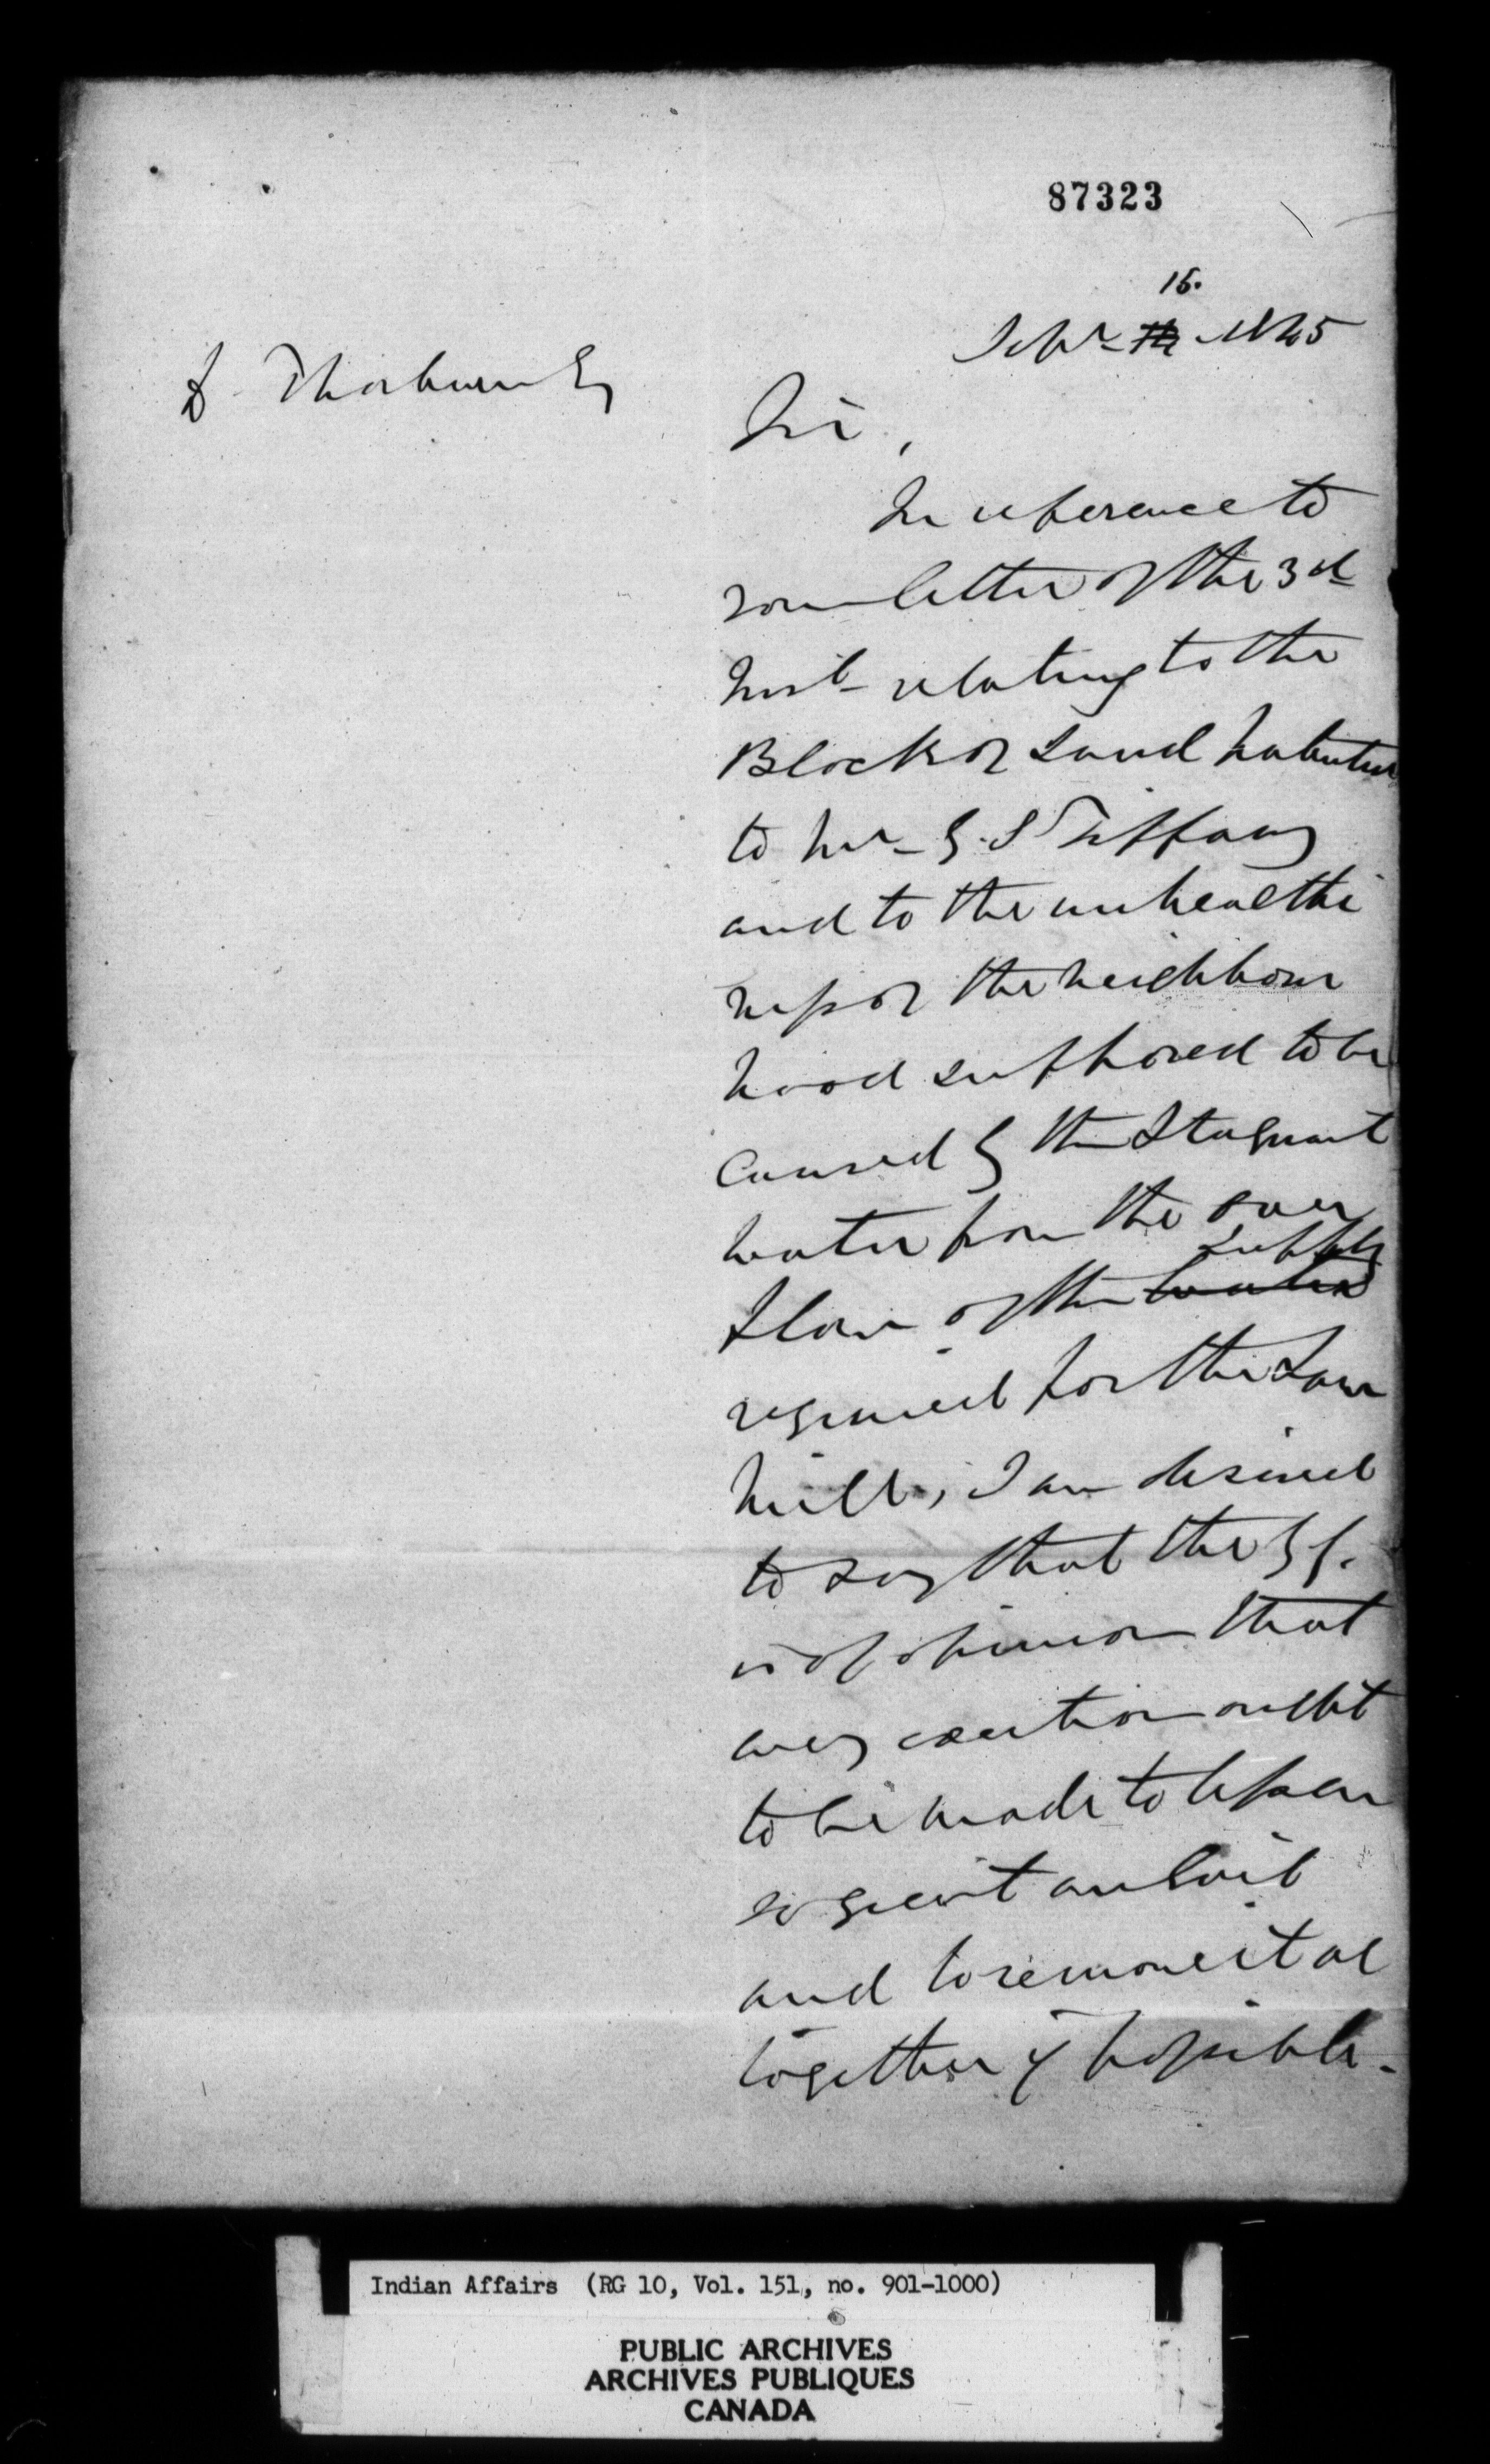 87323
15.
Septr 14 1845
D Thorburn Esq
Sir,
In reference to
your letter of the 3d
Inst- relating to the
Block of Land patented
to Mr- G. S Tiffany
and to the unhealthi
ness of the neighbour
hood supposed to be
caused by the Stagnant
water from the over
supply
flow of the water
required for the Saw
Mill, I am desired
to say that the GG.
is of opinion that
every exertion ought
to be made to lessen
so great an evil
and to remove it al
together if possible.
Indian Affairs (RG 10, Vol. 151, no. 901-1000)
PUBLIC ARCHIVES
ARCHIVES PUBLIQUES
CANADA